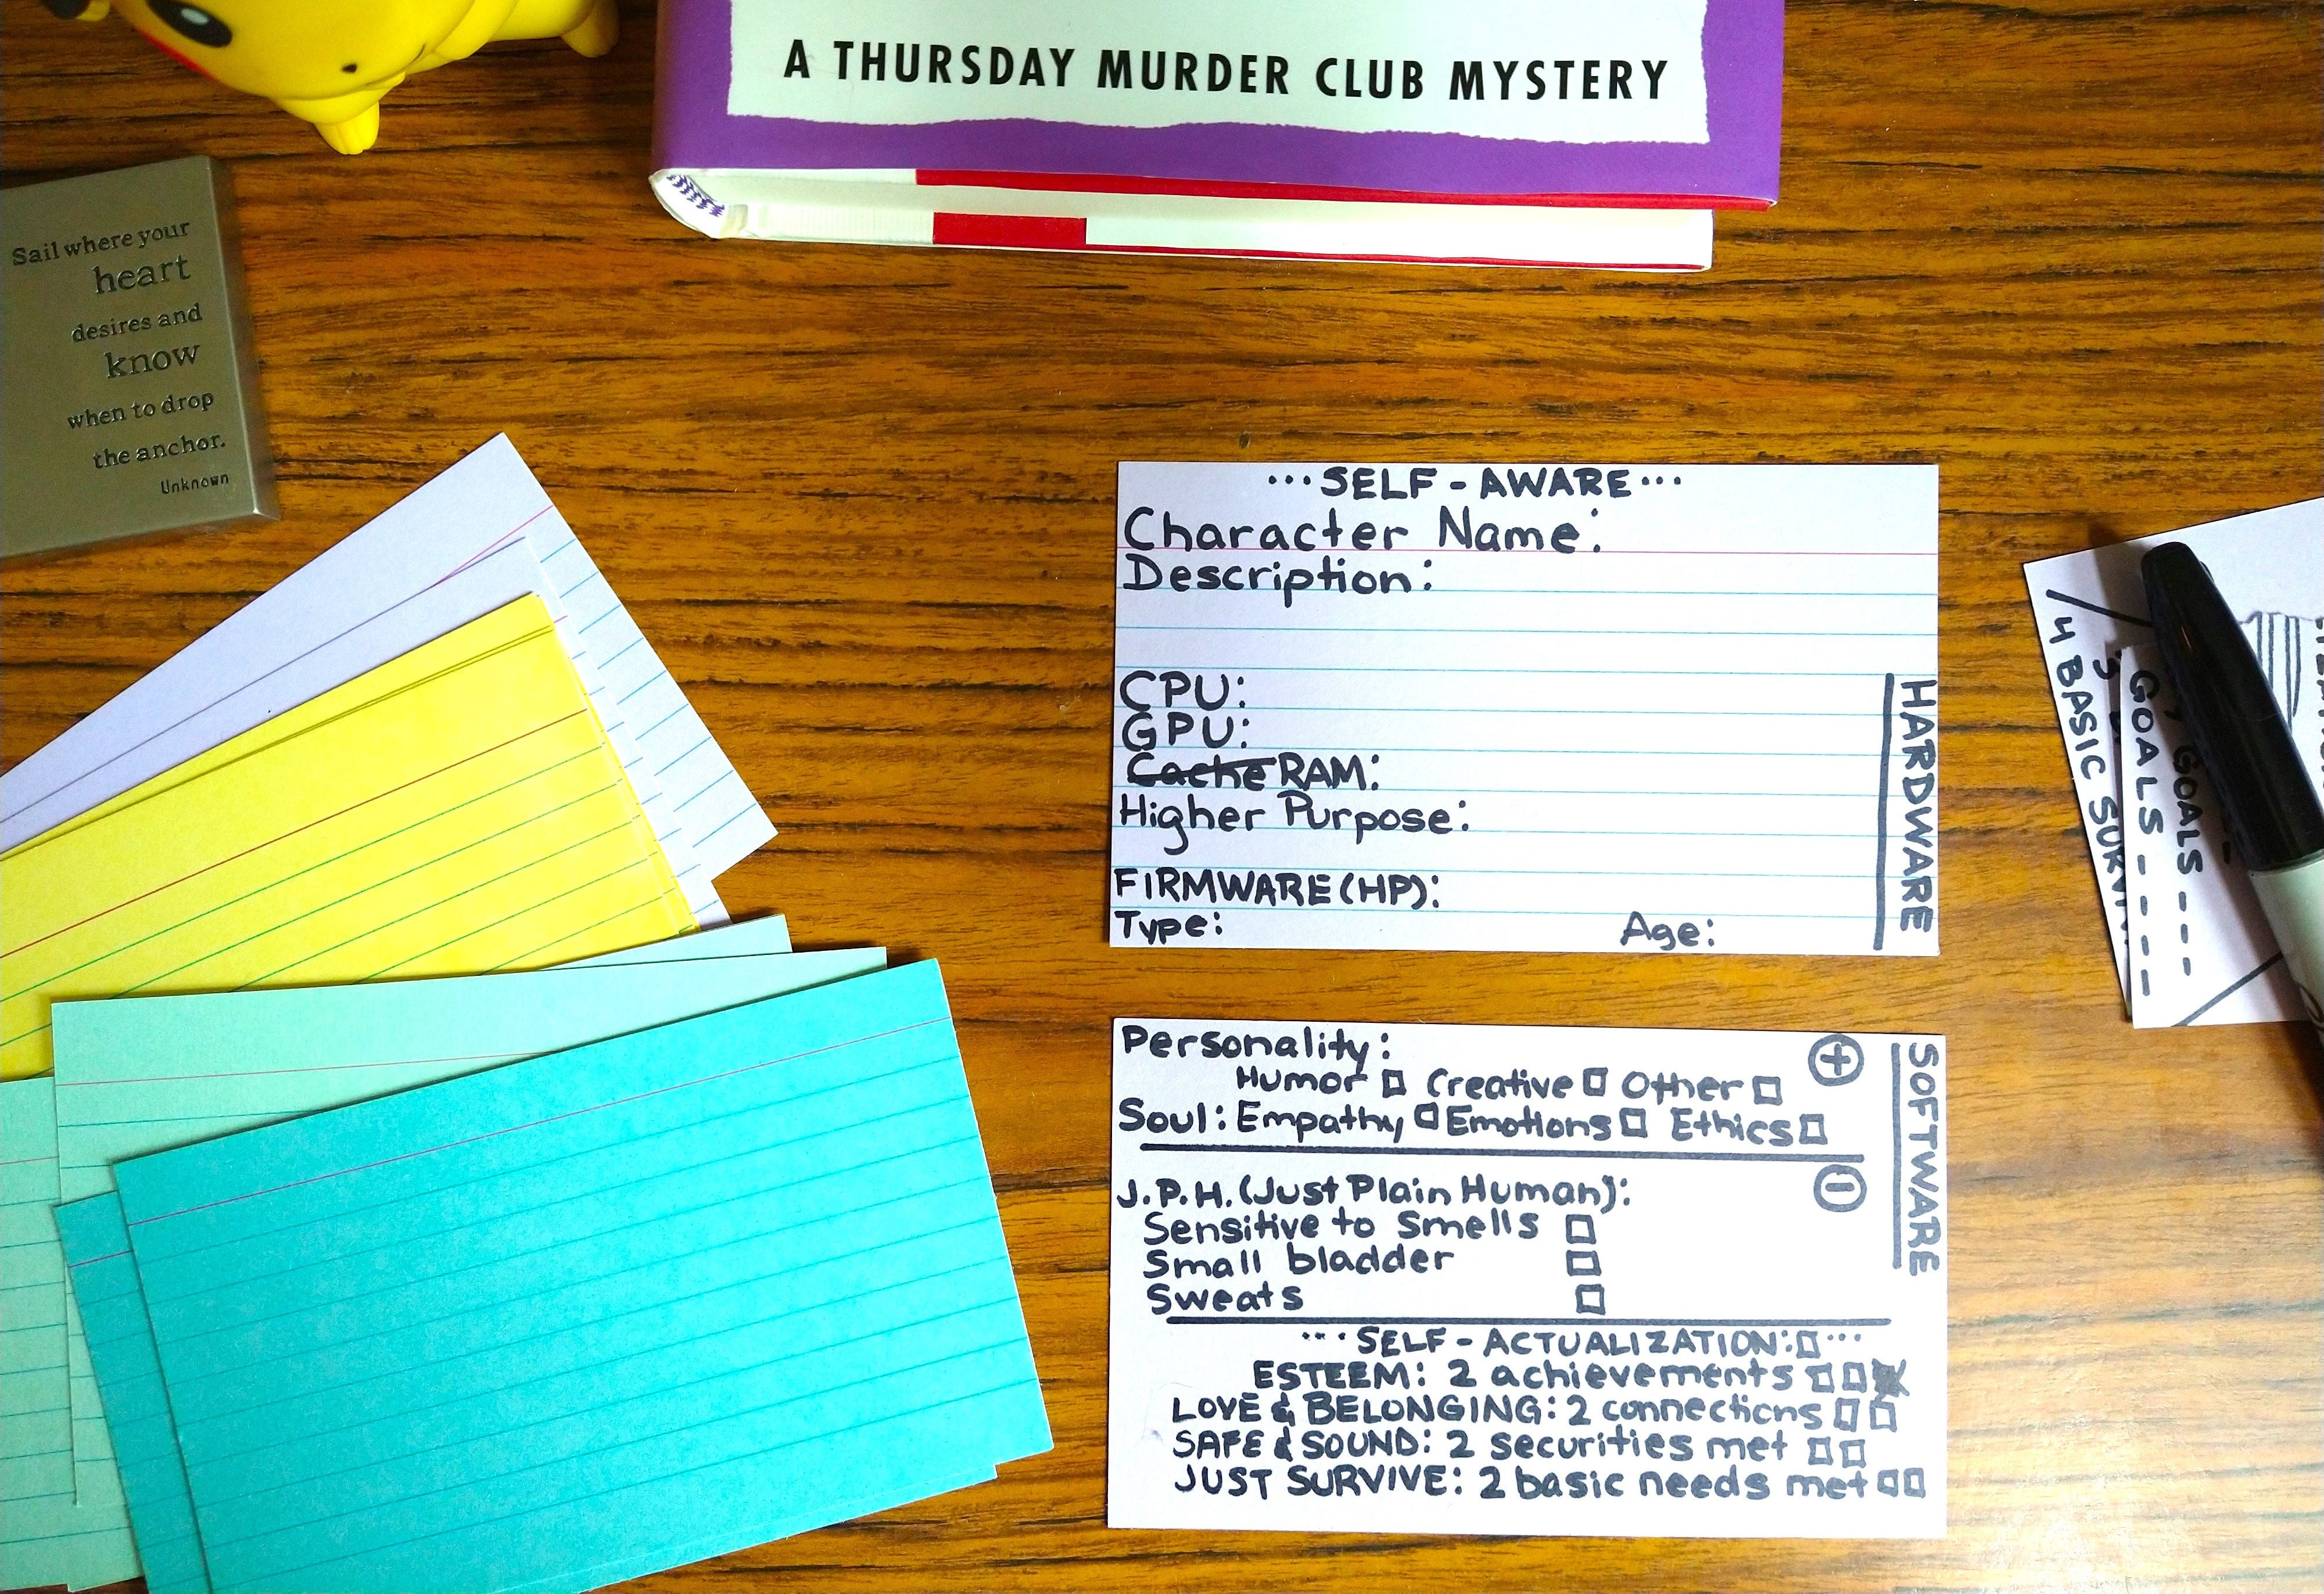 A THURSDAY MURDER CLUB MYSTERY
Sail where your
heart
desires and
know
when to drop
the anchor.
Unknown
...SELF-AWARE...
Character Name:
Description:
CPU:
GPU:
Cache RAM:
Higher Purpose:
FIRMWARE(HP):
Type: Age:
HARDWARE
Personality:
Humor Creative Other
Soul: Empathy Emotions Ethics
+
J.P.H. (Just Plain Human):
-
Sensitive to smells
Small bladder
Sweats
SOFTWARE
...SELF-ACTUALIZATION:...
ESTEEM: 2 achievements
LOVE & BELONGING: 2 connections
SAFE & SOUND: 2 securities met
JUST SURVIVE: 2 basic needs met
4 BASIC
GOALS ----
GOALS ---